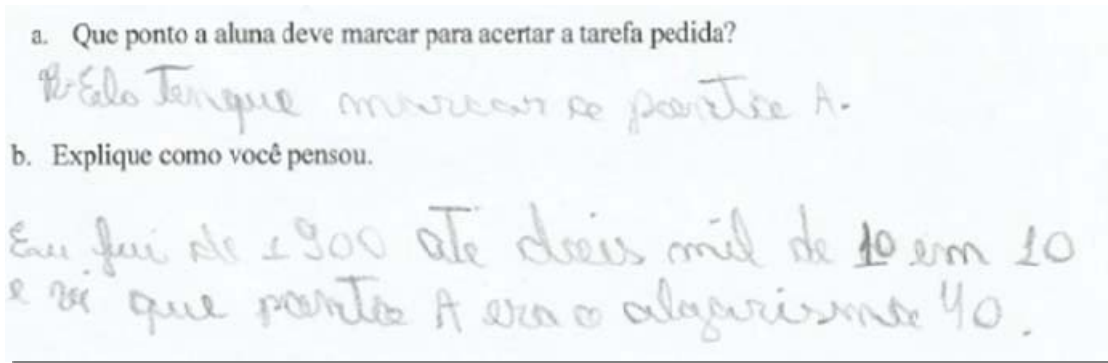 a. Que ponto a aluna deve marcar para acertar a tarefa pedida?
R-Ela Tenque marcar o ponto A.
b. Explique como você pensou.
Eu fui de 1900 até dois mil de 10 em 10
e vi que ponto A era o algarismo 40.